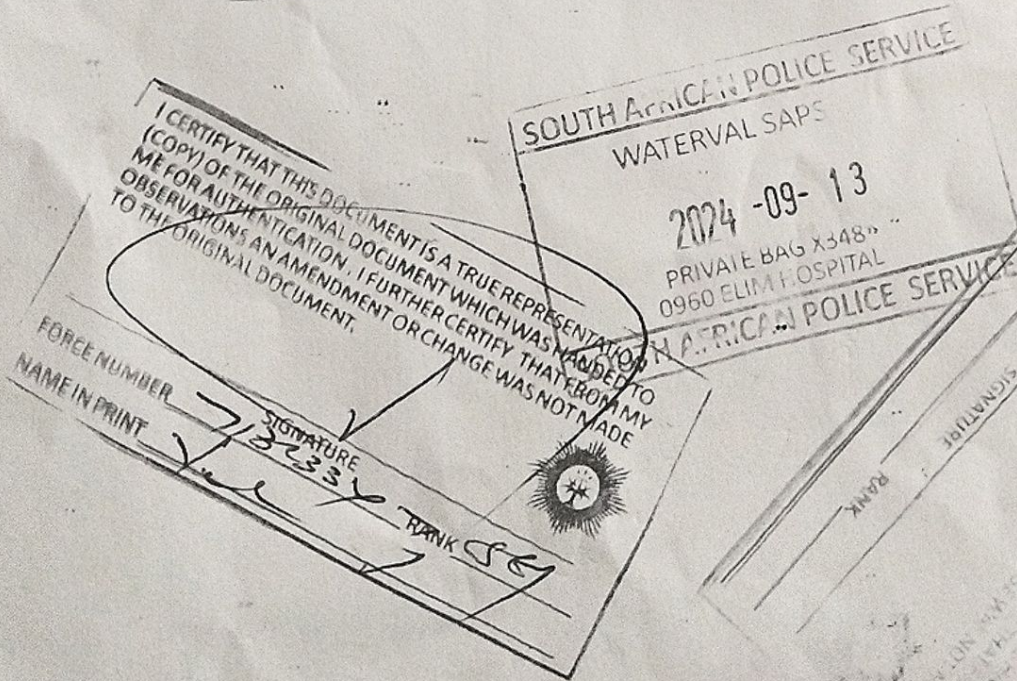 I CERTIFY THAT THIS DOCUMENT IS A TRUE REPRESENTATION
(COPY) OF THE ORIGINAL DOCUMENT WHICH WAS HANDED TO
ME FOR AUTHENTICATION. I FURTHER CERTIFY THAT FROM MY
OBSERVATIONS AN AMENDMENT OR CHANGE WAS NOT MADE
TO THE ORIGINAL DOCUMENT.
SIGNATURE
FORCE NUMBER
RANK
NAME IN PRINT
SOUTH AFRICAN POLICE SERVICE
WATERVAL SAPS
2024 -09- 13
PRIVATE BAG X348
0960 ELIM HOSPITAL
SOUTH AFRICAN POLICE SERVICE
SIGNATURE
RANK